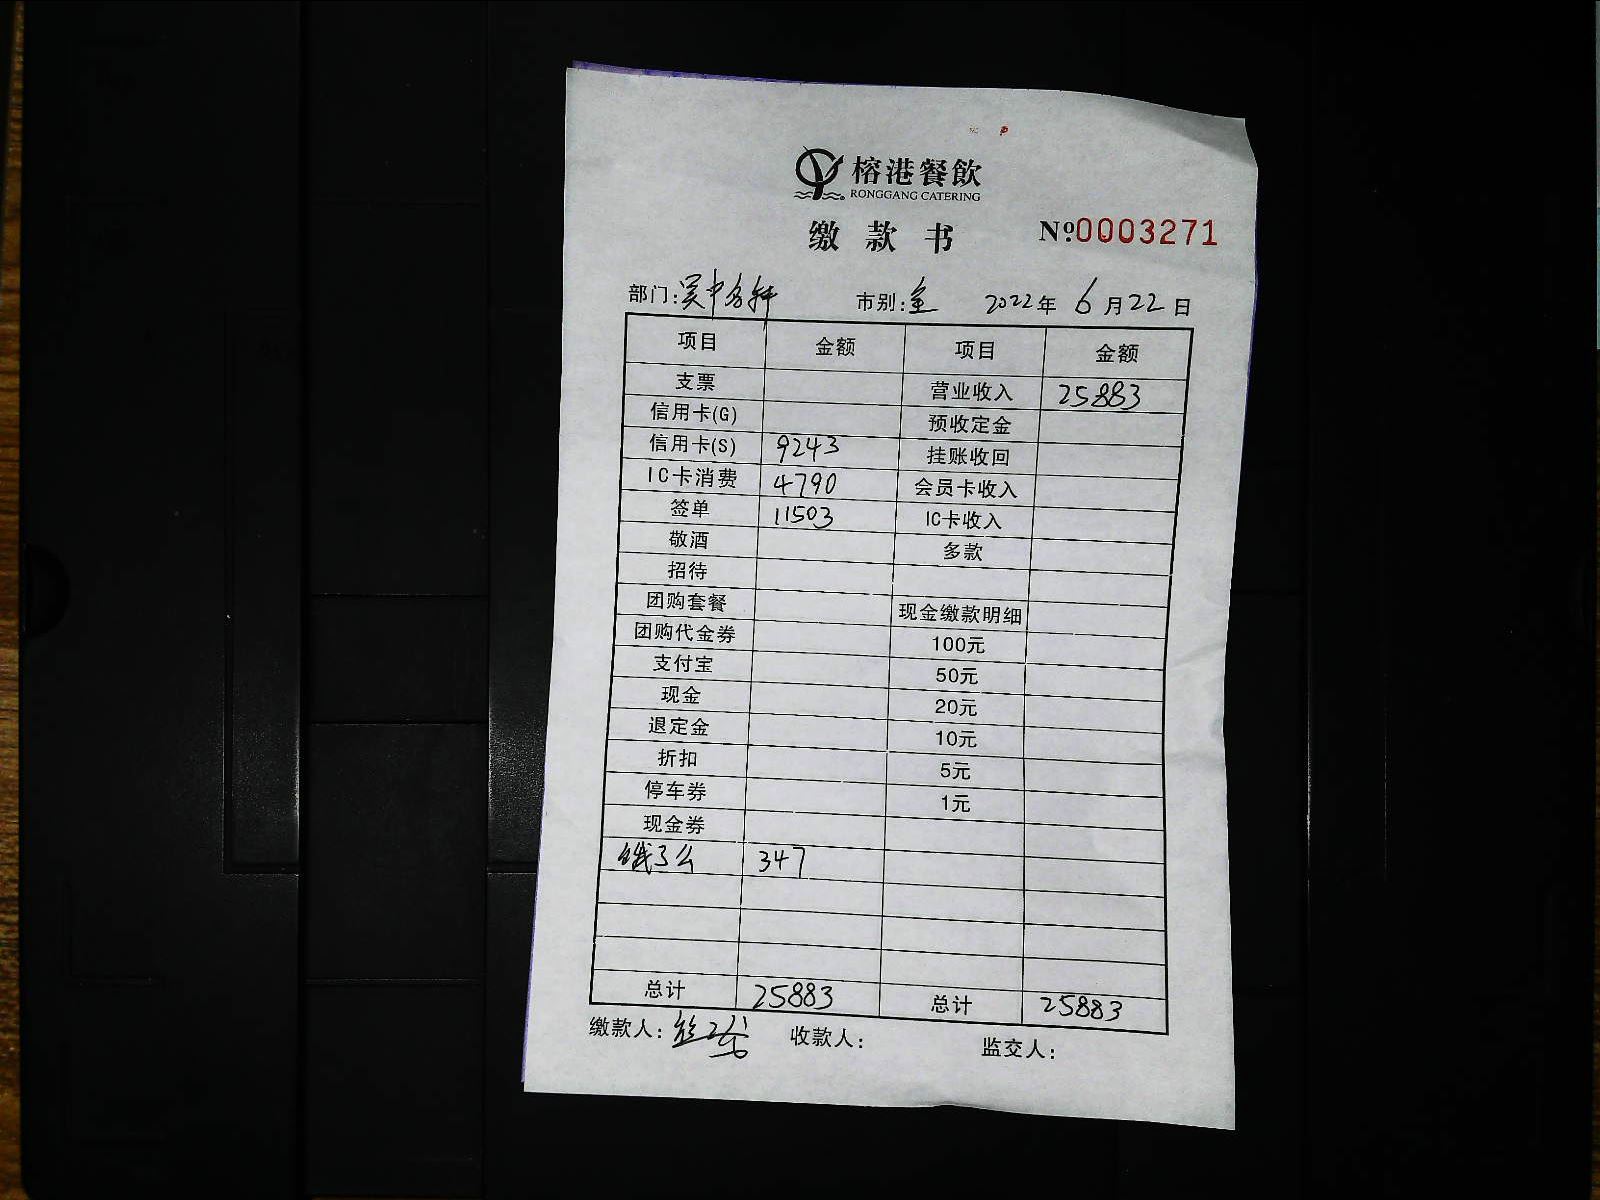 榕港餐飲
RONGGANG CATERING
缴款书 №0003271
部门:吴中 市别:全 2022年6月22日
项目 金额 项目 金额
支票 营业收入 25883
信用卡(G) 预收定金
信用卡(S) 9243 挂账收回
IC卡消费 4790 会员卡收入
签单 11503 IC卡收入
敬酒 多款
招待
团购套餐 现金缴款明细
团购代金券 100元
支付宝 50元
现金 20元
退定金 10元
折扣 5元
停车券 1元
现金券
饿了么 347
总计 25883 总计 25883
缴款人: 收款人: 监交人: